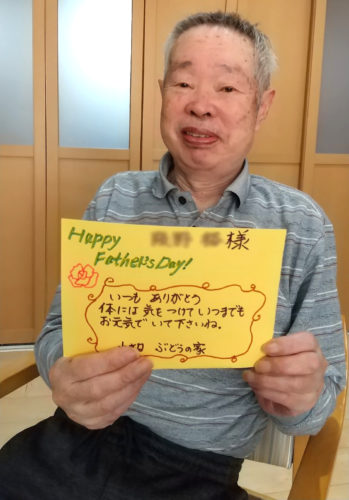 Happy 様
Father's Day!
いつも ありがとう
体には 気を つけて いつまでも
お元気で いて下さいね。
ぶどうの家